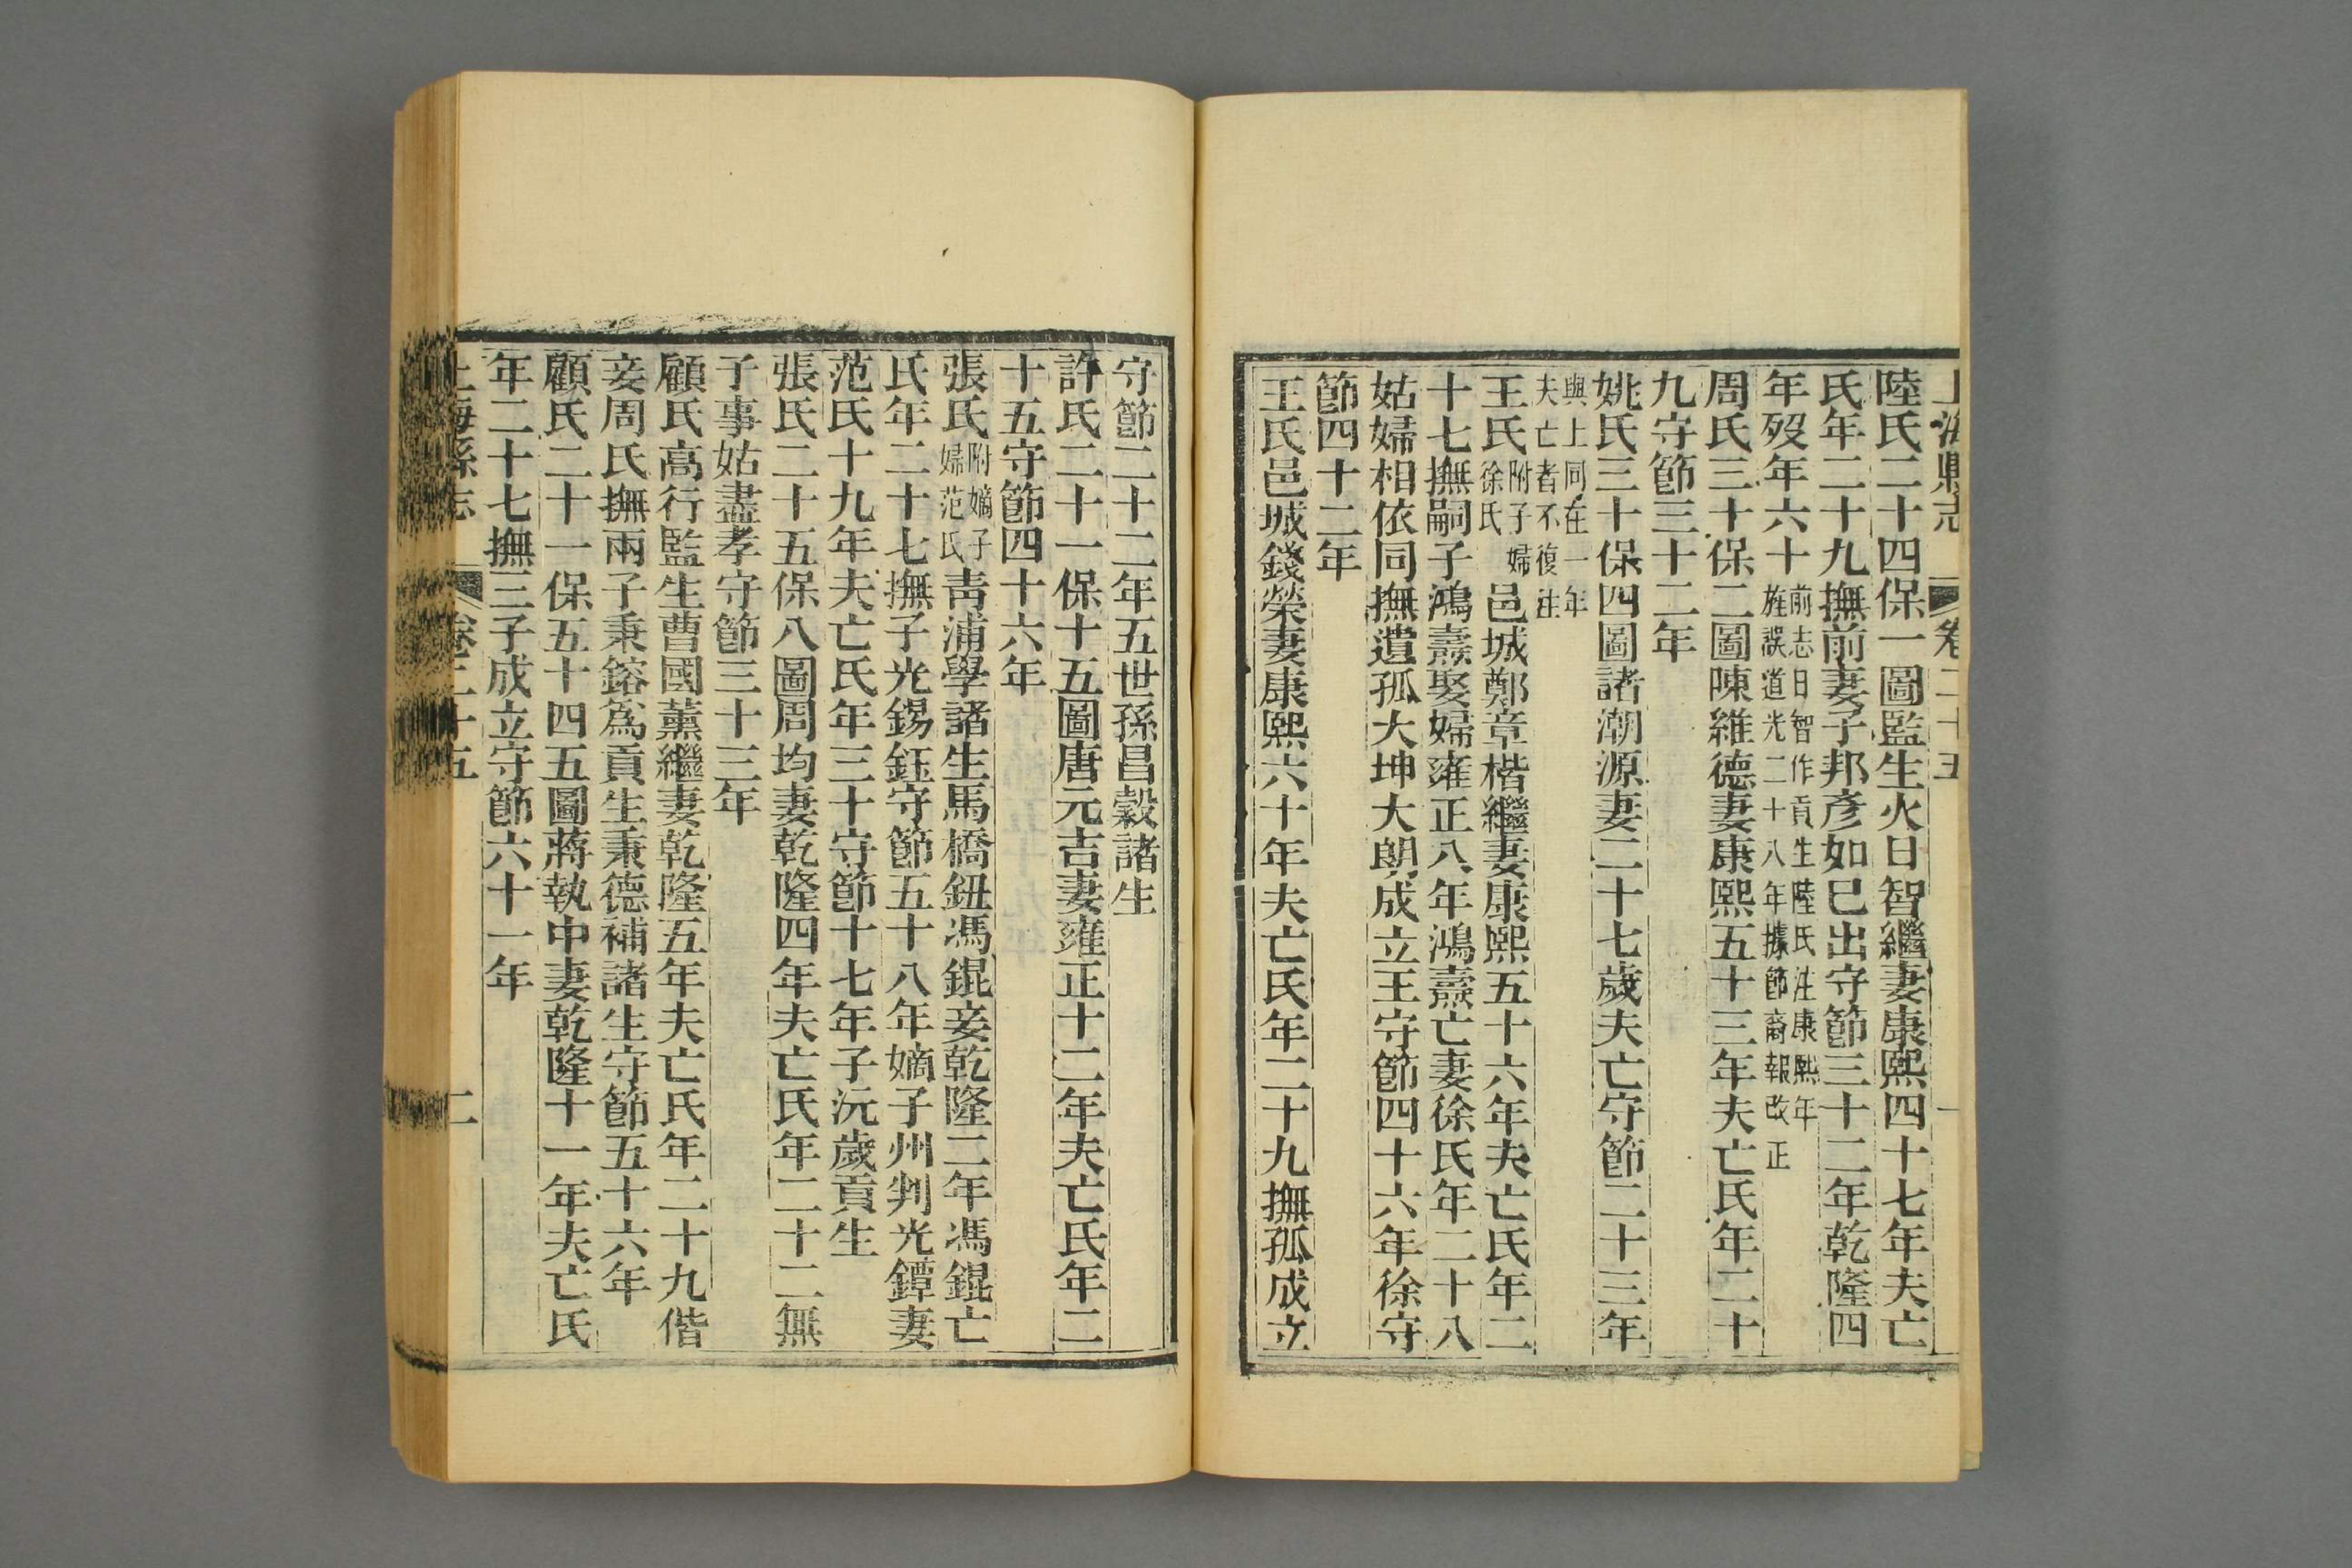 上海縣志 卷二十五 一
陸氏二十四保一圖監生火日智繼妻康熙四十七年夫亡
氏年二十九撫前妻子邦彥如已出守節三十二年乾隆四
年歿年六十前志日智作貢生陸氏注康熙年
旌誤道光二十八年據節裔報改正
周氏三十保二圖陳維德妻康熙五十三年夫亡氏年二十
九守節三十二年
姚氏三十保四圖諸潮源妻二十七歲夫亡守節二十三年
與上同在一年
夫亡者不復注
王氏附子婦
徐氏邑城鄭章楷繼妻康熙五十六年夫亡氏年二
十七撫嗣子鴻燾娶婦雍正八年鴻燾亡妻徐氏年二十八
姑婦相依同撫遺孤大坤大朗成立王守節四十六年徐守
節四十二年
王氏邑城錢榮妻康熙六十年夫亡氏年二十九撫孤成立
守節二十二年五世孫昌穀諸生
許氏二十一保十五圖唐元吉妻雍正十二年夫亡氏年二
十五守節四十六年
張氏附嫡子
婦范氏青浦學諸生馬橋鈕馮錕妾乾隆二年馮錕亡
氏年二十七撫子光錫鈺守節五十八年嫡子州判光鐔妻
范氏十九年夫亡氏年三十守節十七年子沅歲貢生
張氏二十五保八圖周均妻乾隆四年夫亡氏年二十二無
子事姑盡孝守節三十三年
顧氏高行監生曹國薰繼妻乾隆五年夫亡氏年二十九偕
妾周氏撫兩子秉鎔爲貢生秉德補諸生守節五十六年
顧氏二十一保五十四五圖蔣執中妻乾隆十一年夫亡氏
年二十七撫三子成立守節六十一年
上海縣志 卷二十五 二